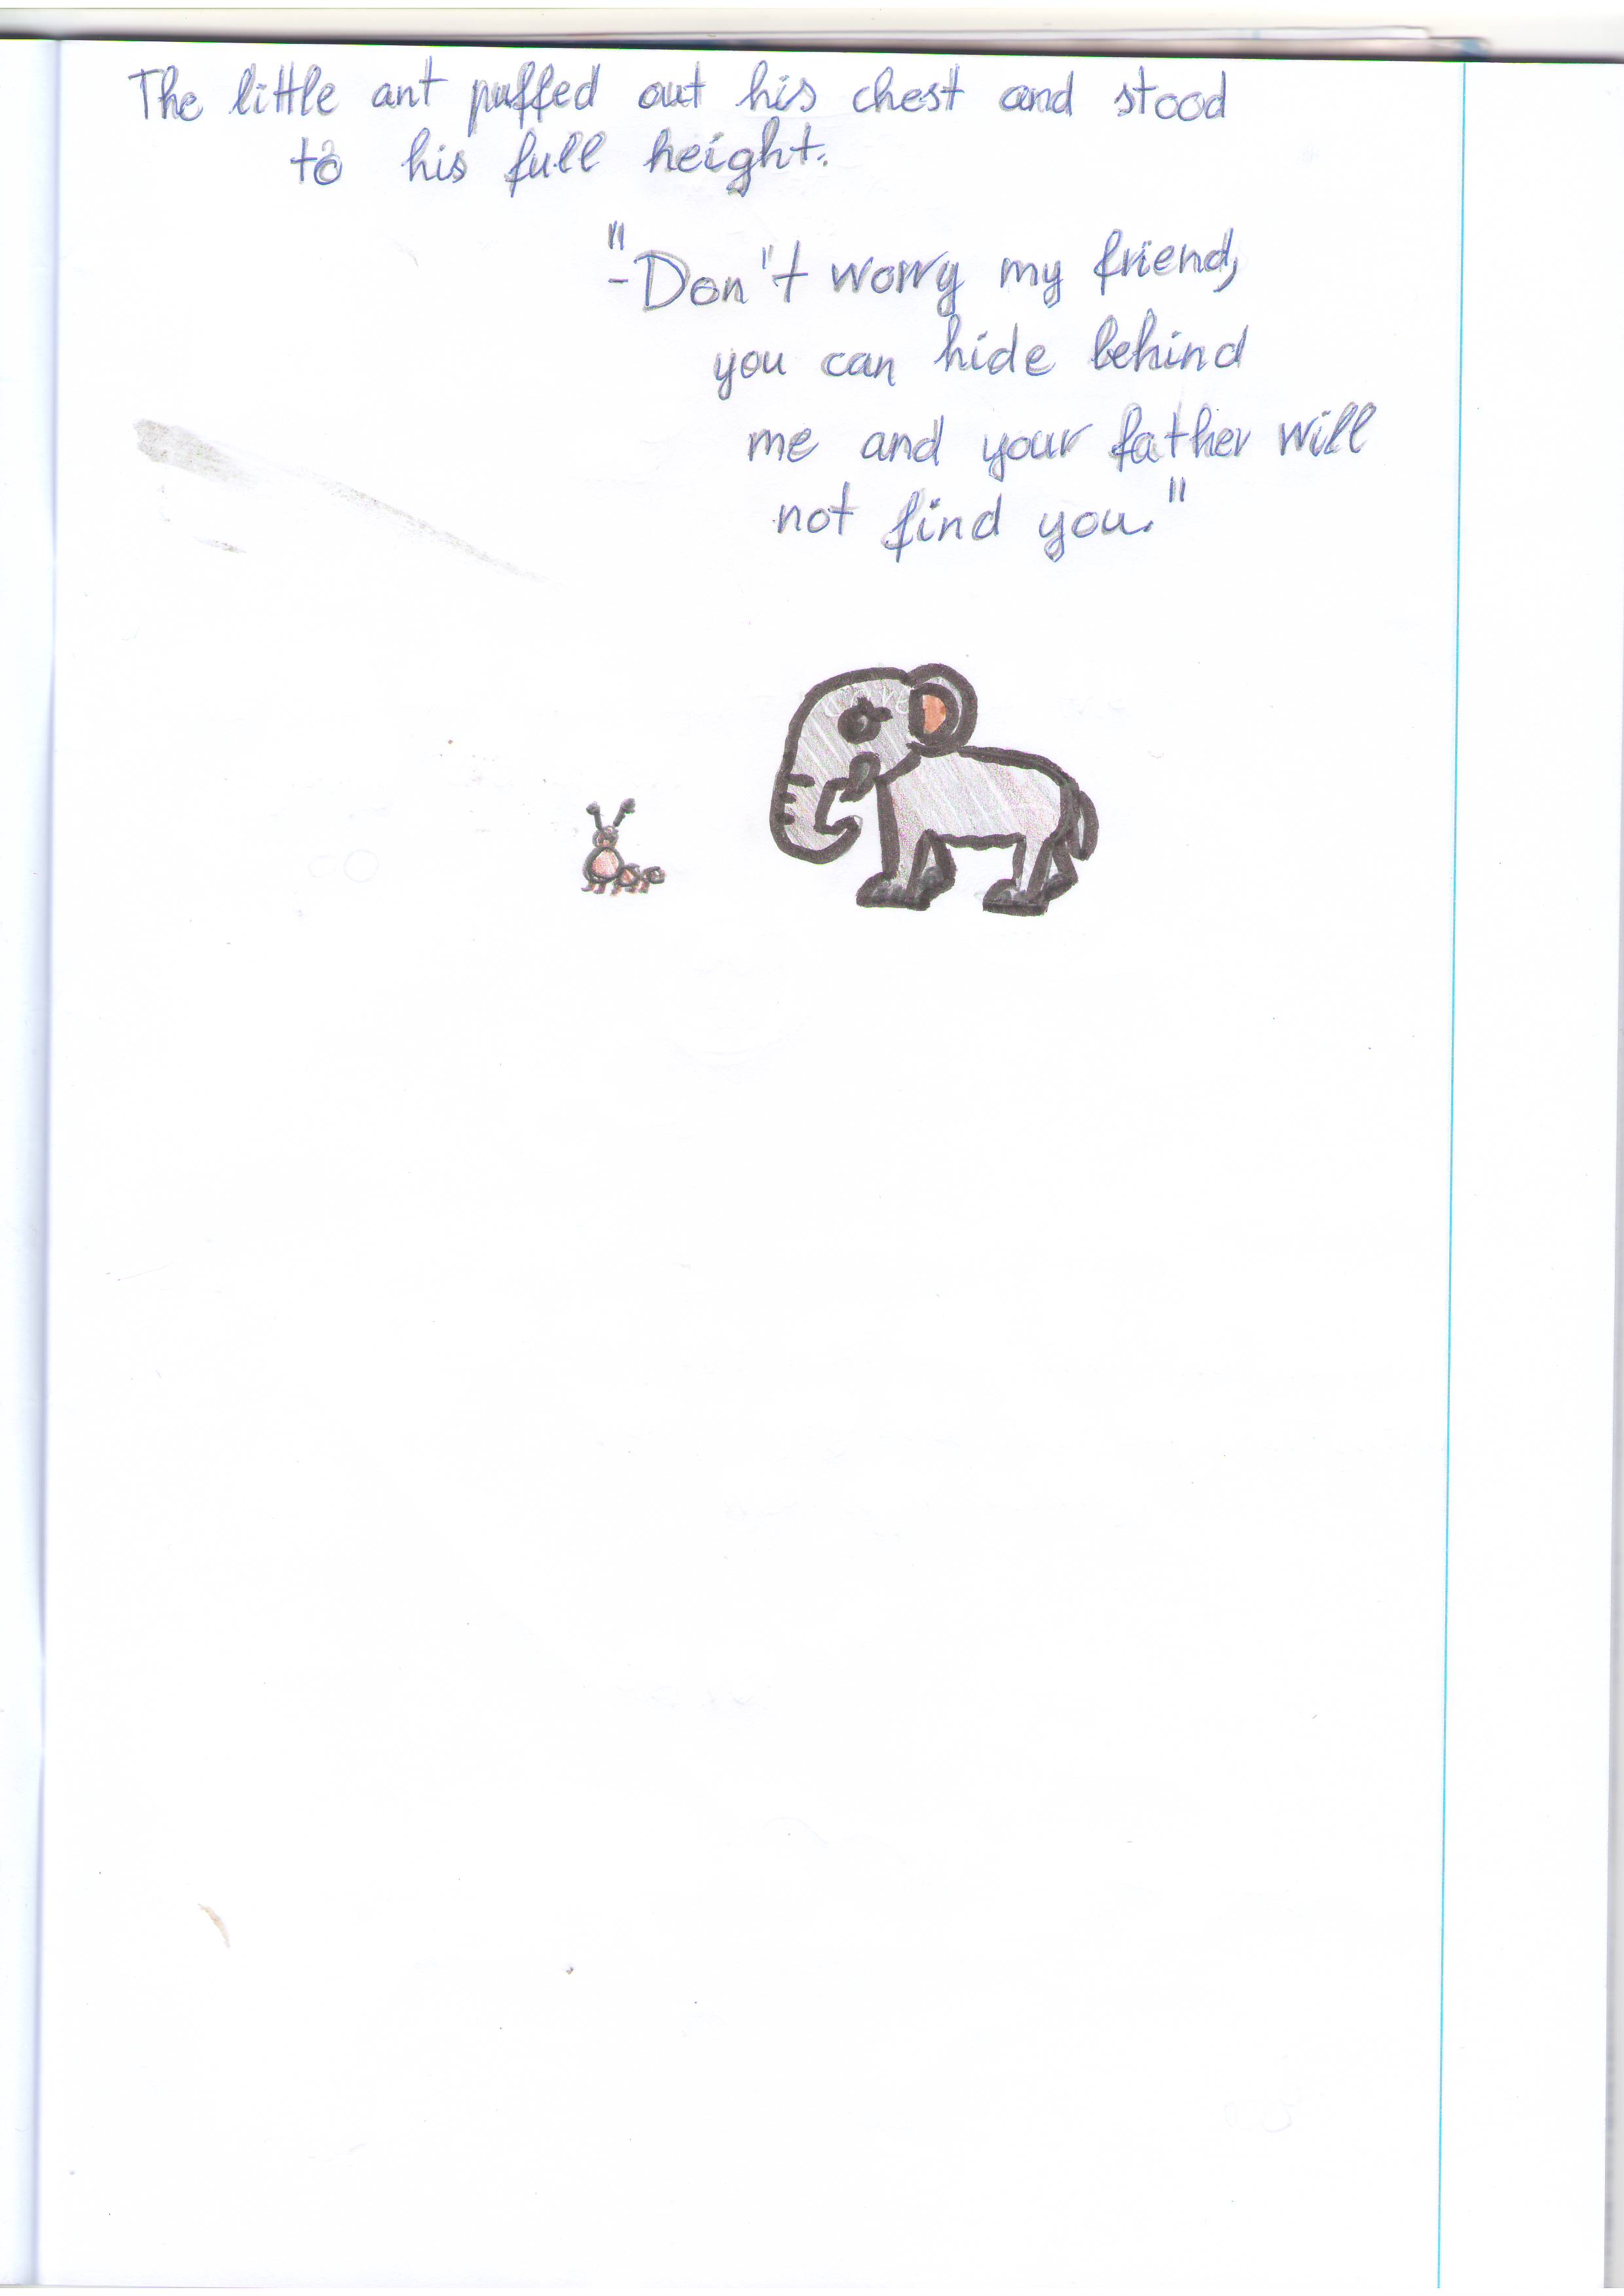 The little ant puffed out his chest and stood
to his full height.
"-Don't worry my friend,
you can hide behind
me and your father will
not find you."